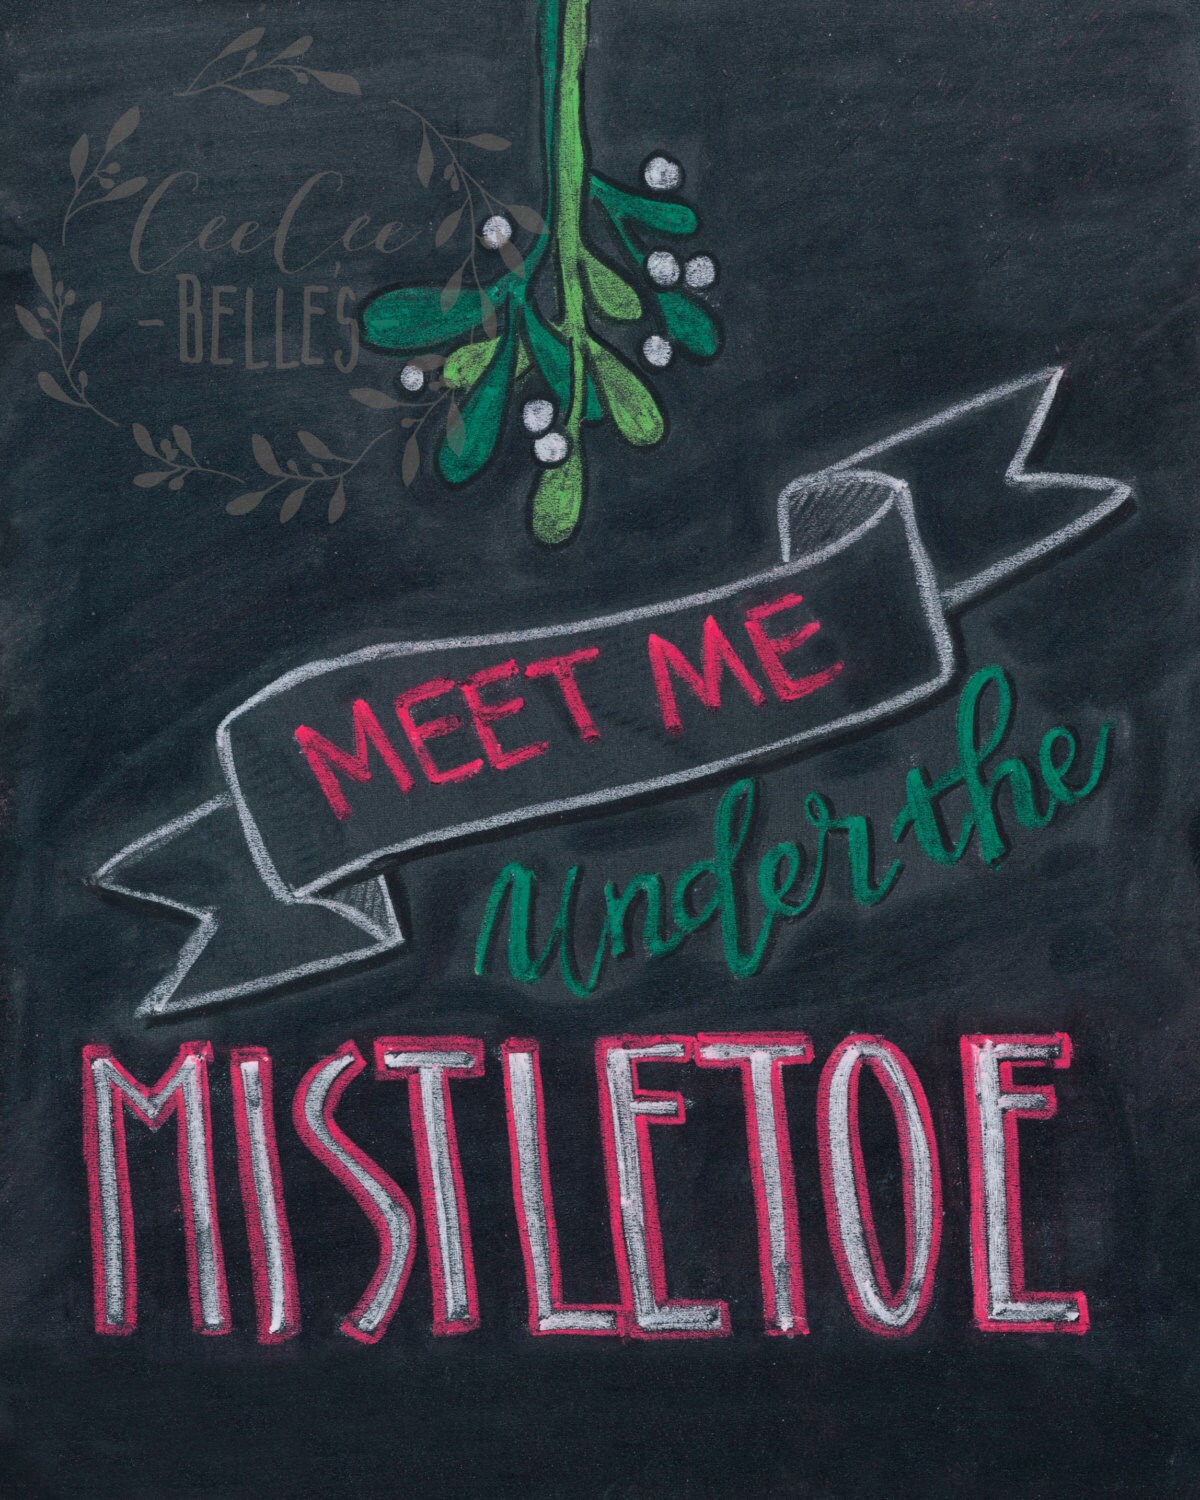 CeeCee
-BELLE'S
MEET ME
Under the
MISTLETOE